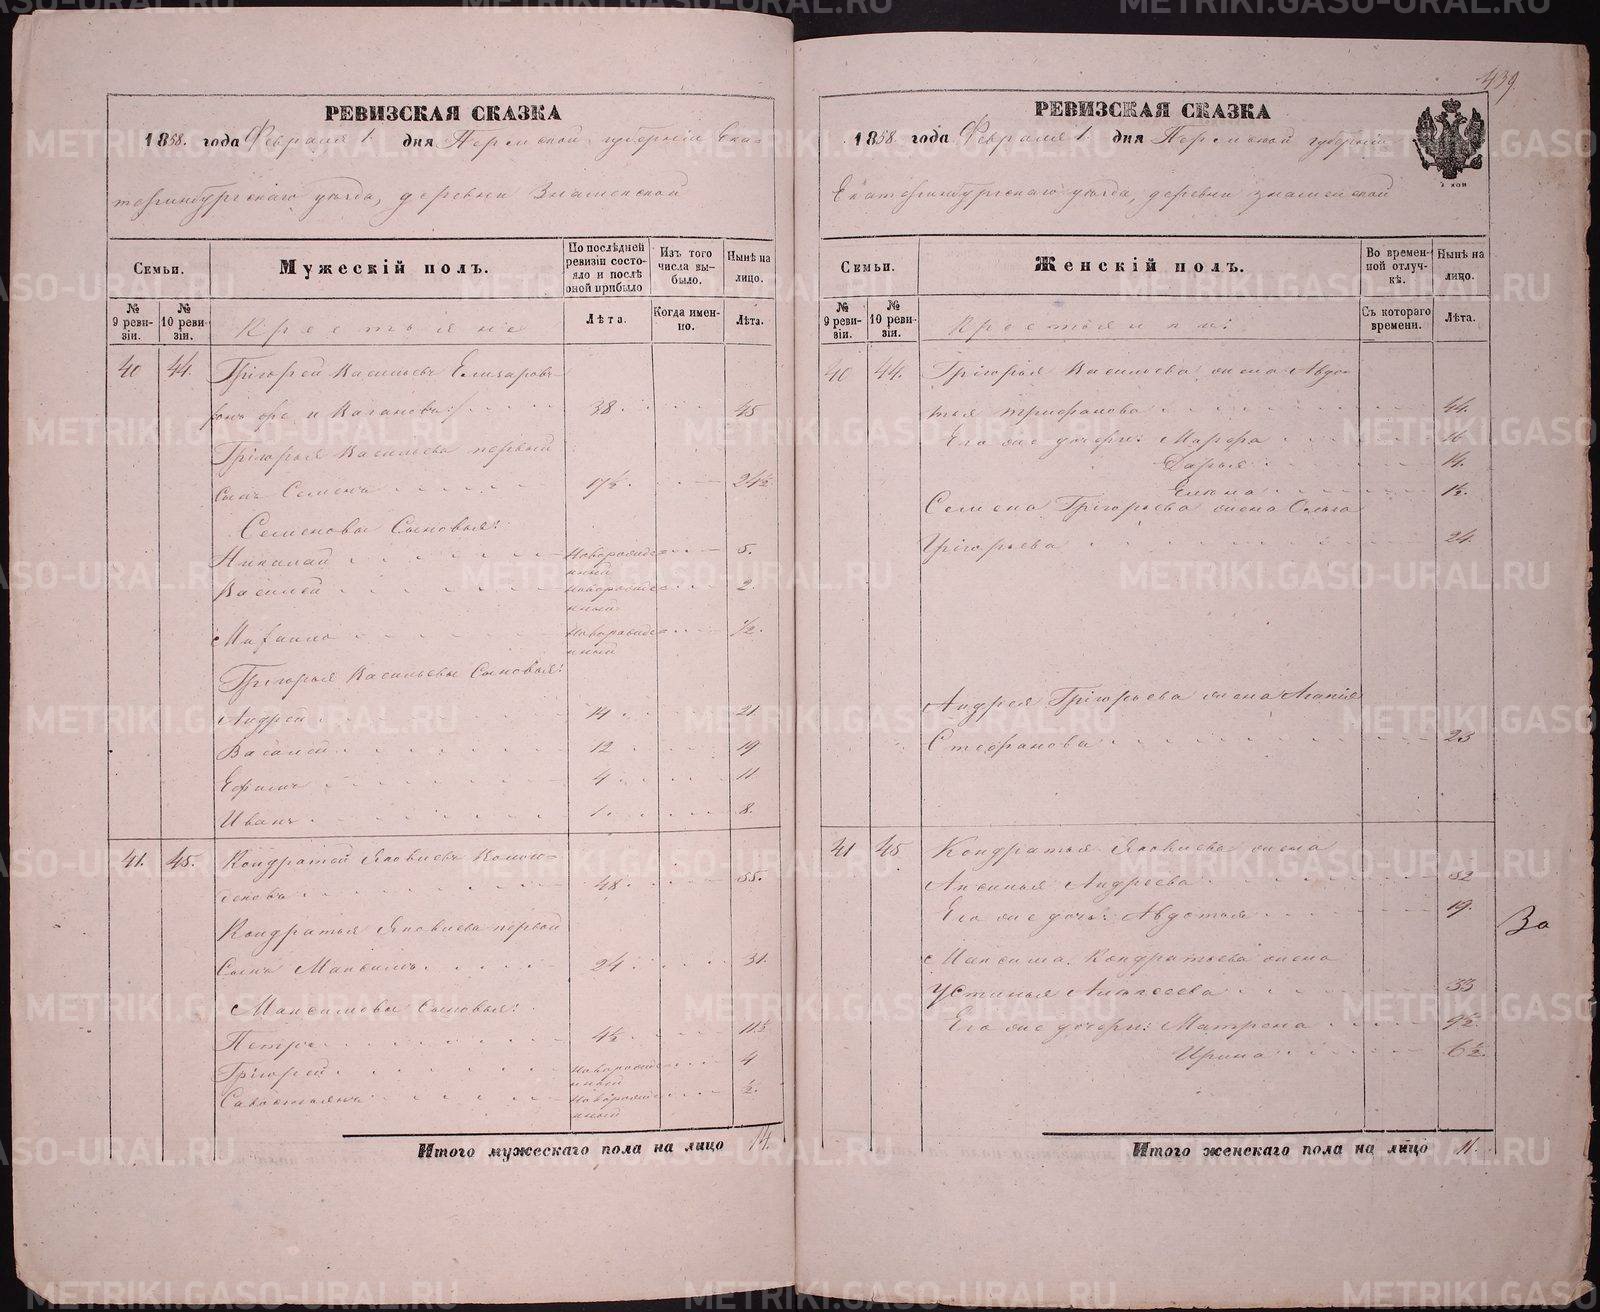 439
РЕВИЗСКАЯ СКАЗКА
1858. года Февраля 1. дня Пермской губерніи Ека-
теринбургскаго уѣзда, деревни Знаменской
Семьи.
Мужескій полъ.
По послѣдней ревизіи состояло и послѣ оной прибыло
Изъ того числа выбыло.
Нынѣ на лицо.
№ 9 ревизіи.
№ 10 ревизіи.
Крестьяне
Лѣта.
Когда именно.
Лѣта.
40 44. Григорей Васильевъ Елизаровъ
онъ же и Вагановъ 38 45
Григорья Васильева первый
сынъ Семенъ 17½ 24½
Семеновы Сыновья:
Николай новорожденный 5.
Василей новорожденный 2.
Михаило новорожденный ½.
Григорья Васильевы Сыновья:
Андрей 14 21
Василей 12 19
Ефимъ 4 11
Иванъ 1 8.
41. 45. Кондратей Яковлевъ
48. 55.
Кондратья Яковлева первой
Сынъ Максимъ 24 31.
Максимовы Сыновья:
Петръ 4½ 11½
Григорей новорожденный 4
Савостьянъ новорожденный ½.
Итого мужескаго пола на лицо 14.
РЕВИЗСКАЯ СКАЗКА
1858 года Февраля 1. дня Пермской губерніи
Екатеринбургскаго уѣзда, деревни Знаменской
Семьи.
Женскій полъ.
Во временной отлучкѣ.
Нынѣ на лицо.
№ 9 ревизіи.
№ 10 ревизіи.
Крестьянки:
Съ котораго времени.
Лѣта.
40 44. Григорья Васильева жена Авдо-
тья Трифанова 44.
Его же дочери: Марфа 16
Дарья 14.
Елена 1½.
Семена Григорьева жена Ольга
Григорьева 24.
Андрея Григорьева жена Агапия
Стефанова 23
41 45 Кондратья Яковлева жена
Аксинья Андреева 52
Его же дочь: Авдотья 19.
Максима Кондратьева жена
Устинья Алексеева 33
Его же дочери: Матрена 9½
Ирина 6½.
Итого женскаго пола на лицо 11.
За
2 коп
METRIKI.GASO-URAL.RU